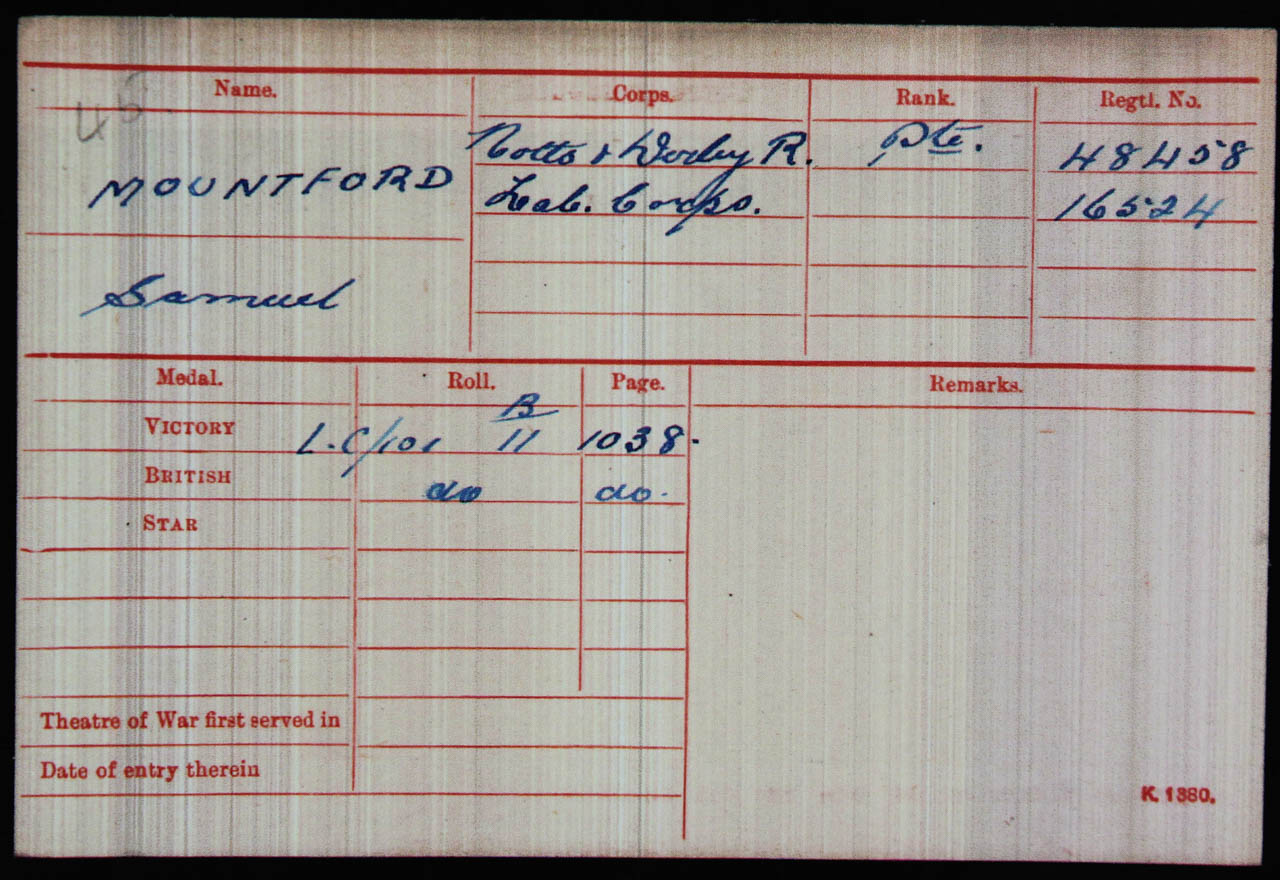 Name. Corps. Rank. Regtl. No.
45
MOUNTFORD Notts & Derby R. Pte. 48458
Lab. Corps. 16524
Samuel
Medal. Roll. Page. Remarks.
VICTORY L.C/101 B 11 1038.
BRITISH do do.
STAR
Theatre of War first served in
Date of entry therein
K. 1380.